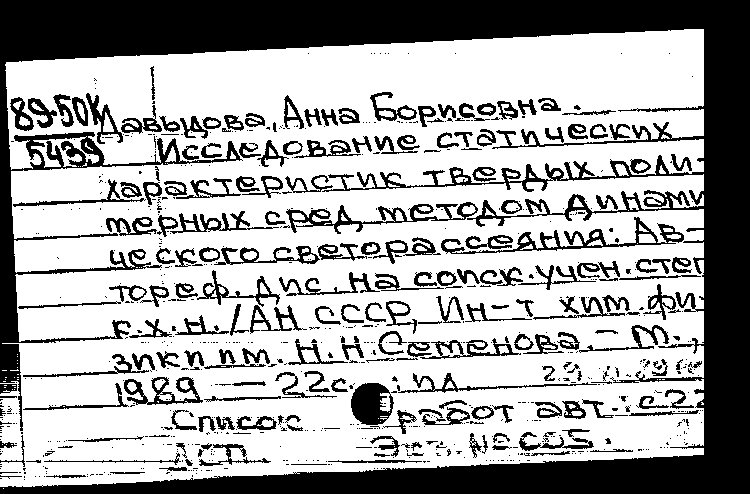 89-50К
5439
Давыдова, Анна Борисовна.
Исследование статических
характеристик твердых поли-
мерных сред методом динами
ческого светорассеяния: Ав-
тореф. дис. на соиск. учен. степ
к.х.н. / АН СССР, Ин-т хим. фи-
зики им. Н.Н. Семенова. – М.,
1989. – 22с. : ил.
Список работ авт.: с 22
ДСП. Экз. №